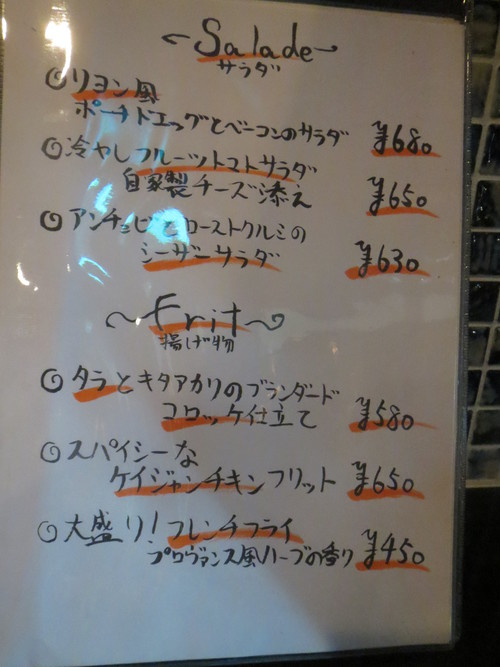 ~Salade~
サラダ
◎リヨン風
ポーチドエッグとベーコンのサラダ ¥680
◎冷やしフルーツトマトサラダ
自家製チーズ添え ¥650
◎アンチョビとローストクルミの
シーザーサラダ ¥630
~Frit~
揚げ物
◎タラとキタアカリのブランダード
コロッケ仕立て ¥580
◎スパイシーな
ケイジャンチキンフリット ¥650
◎大盛り!フレンチフライ
プロヴァンス風ハーブの香り ¥450